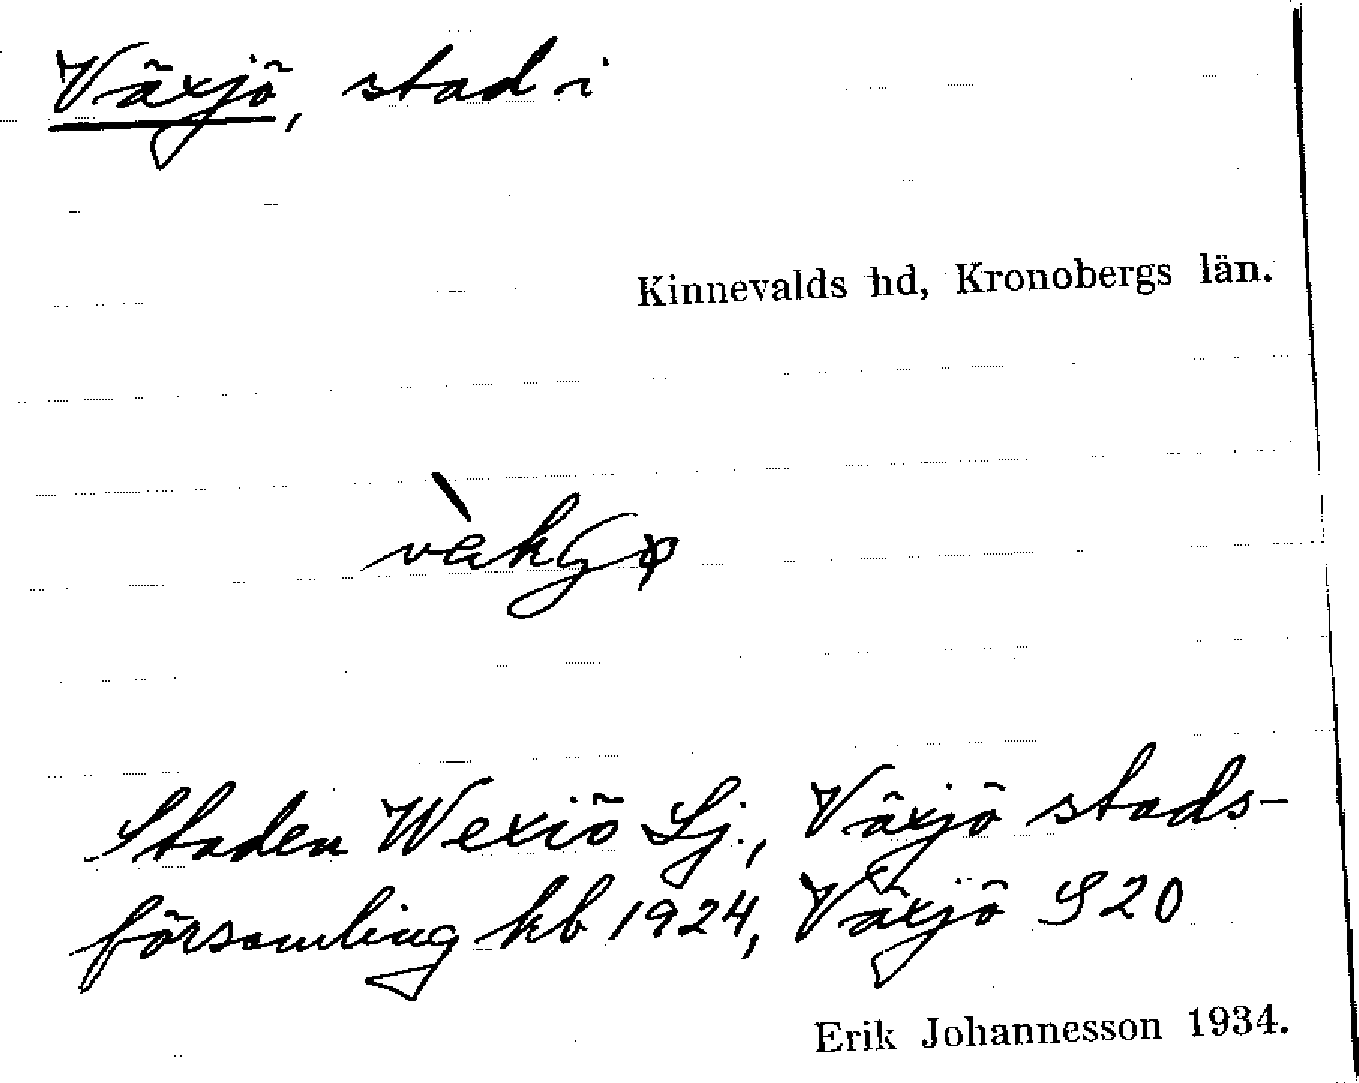 Växjö, stad i
Kinnevalds hd, Kronobergs län.
vàkʃø
Staden Wexiö Lj., Växjö stads-
församling kb 1924, Växjö S20
Erik Johannesson 1934.